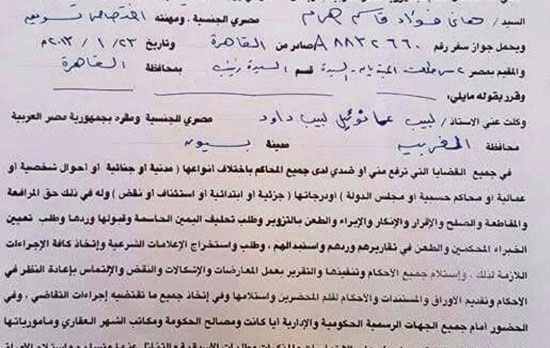 السيد / هانى فؤاد قاسم همام مصري الجنسية . ومهنته اختصاصى تسويق
ويحمل جواز سفر رقم A 8832660 صادر من القاهرة وتاريخ ٢٣ / ١ / ٢٠١٣م
والمقيم بمصر ٢ س السيدة قسم السيدة زينب بمحافظة القاهرة
وقرر بقوله مايلي:
وكلت عني الاستاذ / لبيب لبيب داود مصري الجنسية ومقره بجمهورية مصر العربية
محافظة الغربيه مدينة بسيون
في جميع القضايا التي ترفع مني أو ضدي لدى جميع المحاكم باختلاف انواعها ( مدنية أو جنائية أو أحوال شخصية أو
عمالية أو محاكم حسبية أو مجلس الدولة ) اودرجاتها ( جزئية أو ابتدائية أو استئناف أو نقض ) وله في ذلك حق المرافعة
والمقاطعة والصلح والإقرار والإنكار والإبراء والطعن بالتزوير وطلب تحليف اليمين الحاسمة وقبولها وردها وطلب تعيين
الخبراء المحكمين والطعن في تقاريرهم وردهم واستبدالهم . وطلب واستخراج الإعلامات الشرعية وإتخاذ كافة الإجراءات
اللازمة لذلك . وإستلام جميع الأحكام وتنفيذها والتقرير بعمل المعارضات والإشكالات والنقض والإلتماس بإعادة النظر في
الأحكام وتقديم الأوراق والمستندات والأحكام لقلم المحضرين واستلامها وفي إتخاذ جميع ما تقتضيه إجراءات التقاضي . وفي
الحضور أمام جميع الجهات الرسمية الحكومية والإدارية ايا كانت ومصالح الحكومة ومكاتب الشهر العقاري ومأمورياتها